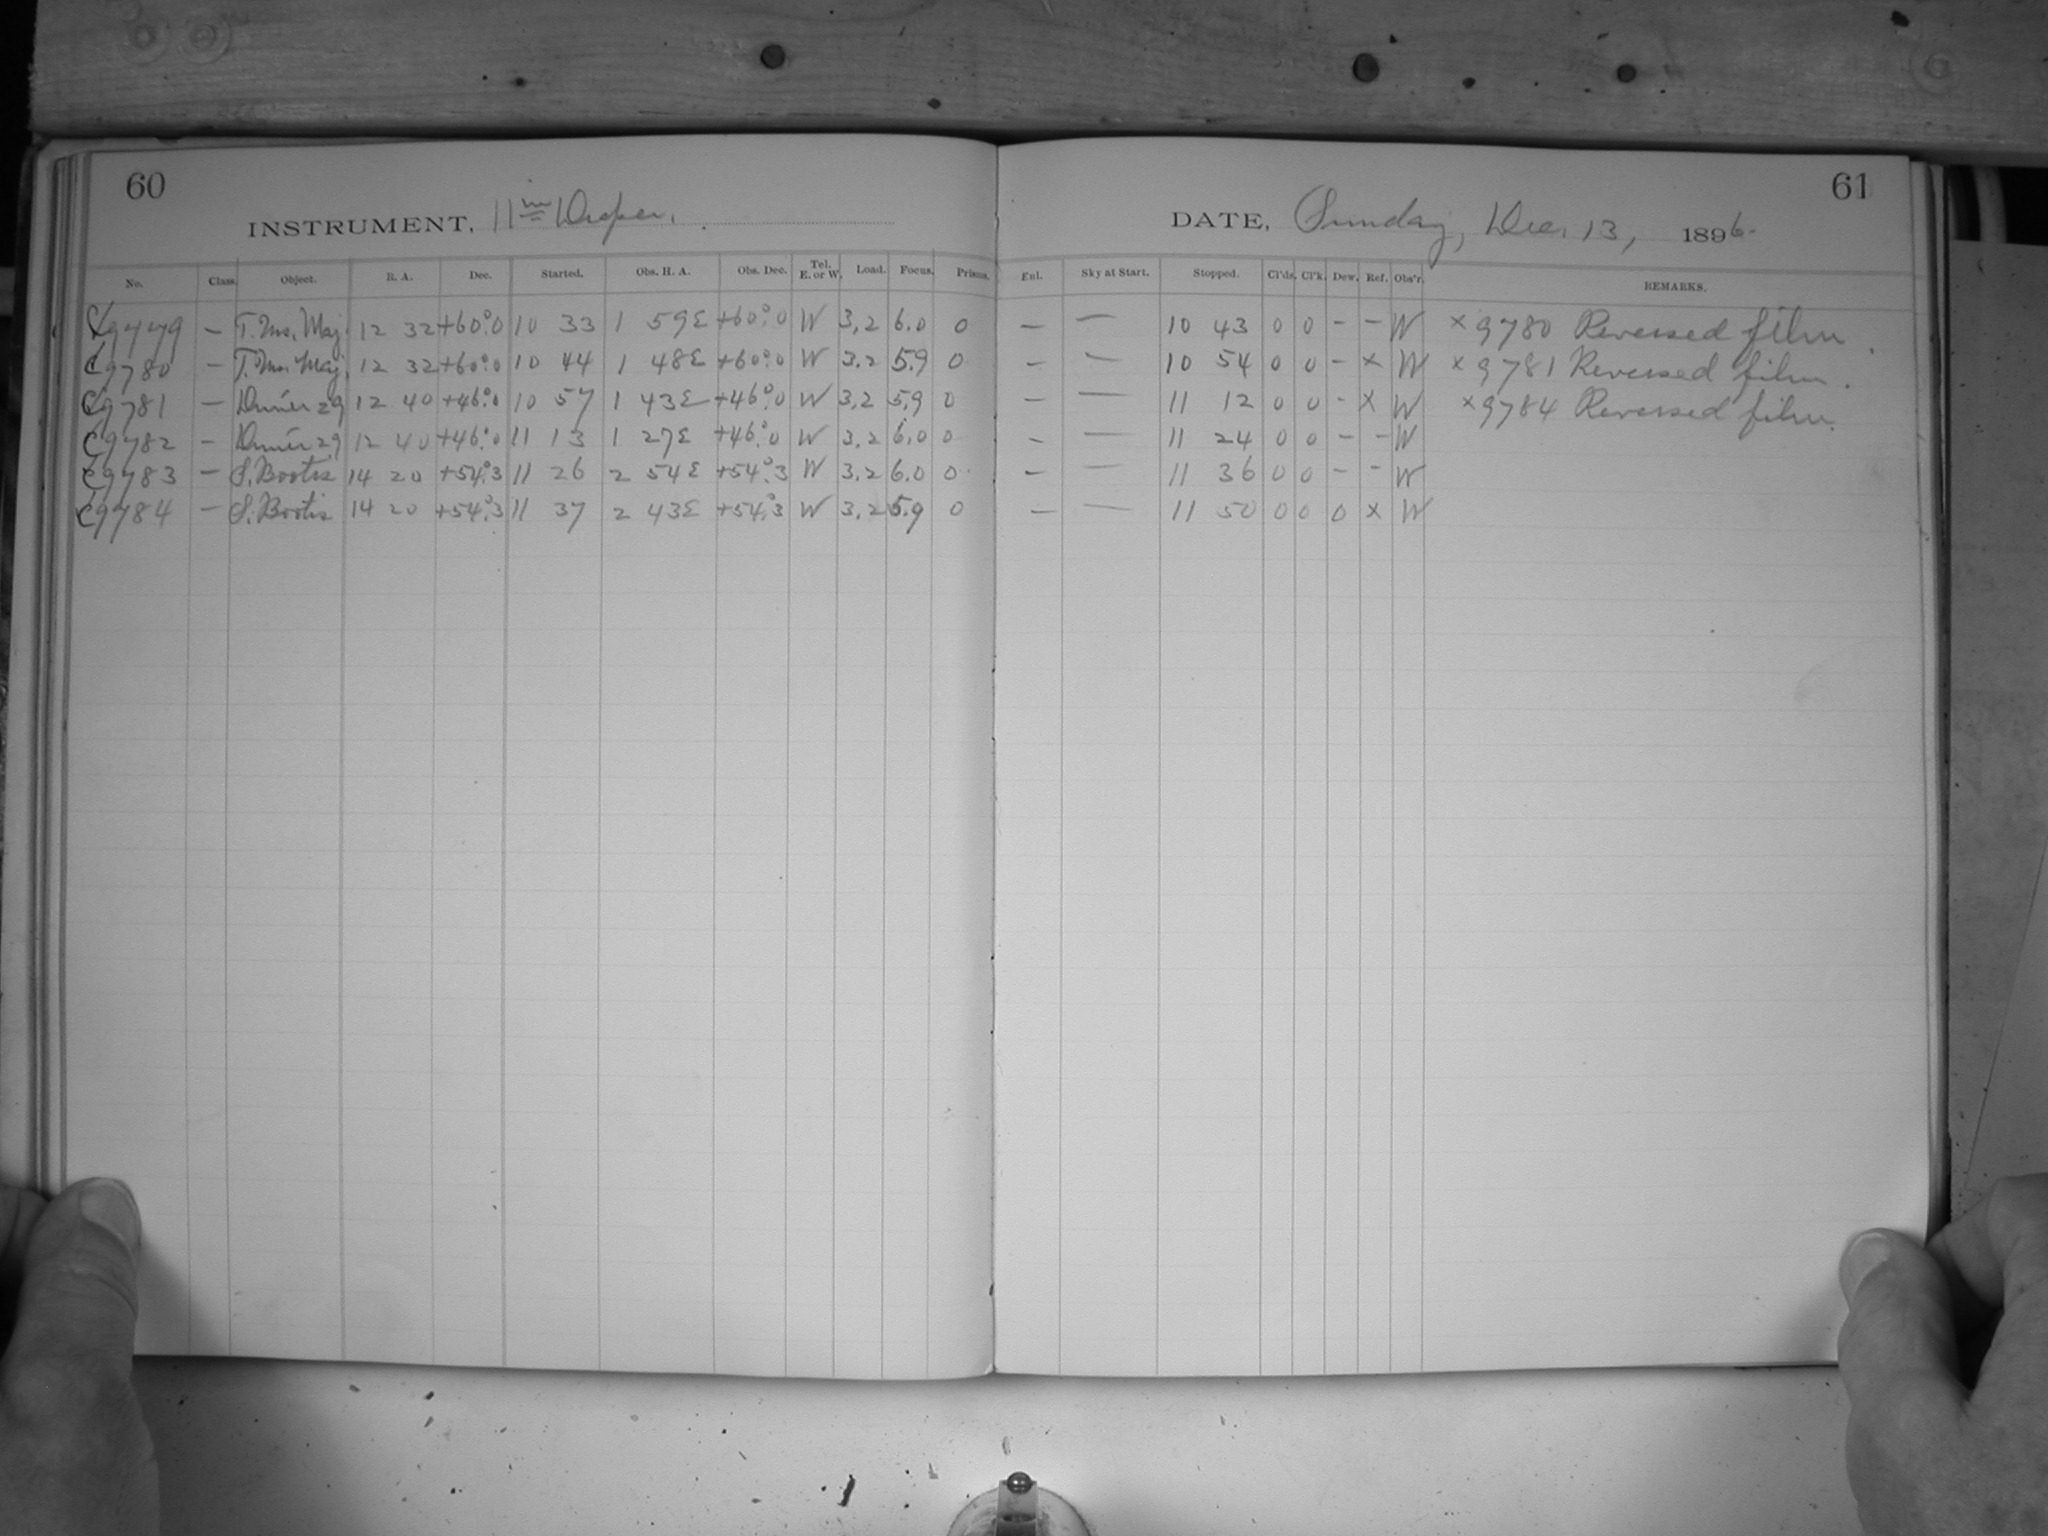 60
INSTRUMENT, 11 in Draper.
No. Class. Object. R. A. Dec. Started. Obs. H. A. Obs. Dec. Tel. E. or W. Load. Focus. Prisms.
C9779 — T. Urs. Maj. 12 32 +60°.0 10 33 1 59E +60°.0 W 3,2 6.0 0
C9780 — T. Urs. Maj. 12 32 +60°.0 10 44 1 48E +60°.0 W 3.2 5.9 0
C9781 — Dunér 29 12 40 +46°.0 10 57 1 43E +46°.0 W 3,2 5,9 0
C9782 — Dunér 29 12 40 +46°.0 11 13 1 27E +46°.0 W 3.2 6.0 0
C9783 — S. Bootis 14 20 +54°.3 11 26 2 54E +54°.3 W 3.2 6.0 0
C9784 — S. Bootis 14 20 +54°.3 11 37 2 43E +54°.3 W 3.2 5.9 0
61
DATE, Sunday, Dec. 13, 1896.
Enl. Sky at Start. Stopped. Cl'ds. Cl'k. Dew. Ref. Obs'r. REMARKS.
— — 10 43 0 0 - - W × 9780 Reversed film.
— — 10 54 0 0 - × W × 9781 Reversed film.
— — 11 12 0 0 - × W × 9784 Reversed film.
— — 11 24 0 0 - - W
— — 11 36 0 0 - - W
— — 11 50 0 0 0 × W